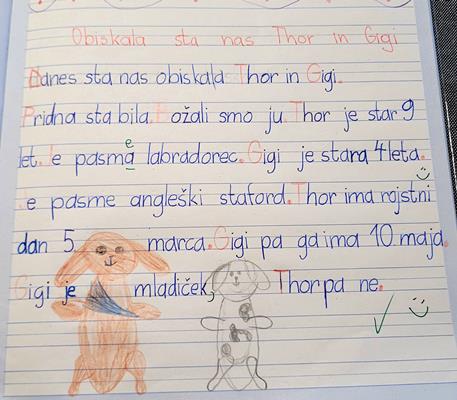 Obiskala sta nas Thor in Gigi
Danes sta nas obiskala Thor in Gigi.
Pridna sta bila. Božali smo ju. Thor je star 9
let. Je pasma e labradorec. Gigi je stara 4 leta.
Je pasme angleški staford. Thor ima rojstni
dan 5. marca. Gigi pa ga ima 10. maja.
Gigi je mladiček, Thor pa ne.